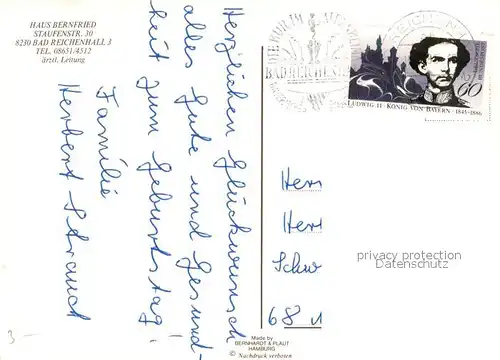 HAUS BERNFRIED
STAUFENSTR. 30
8230 BAD REICHENHALL 3
TEL. 08651/4512
ärztl. Leitung
Herzlichen Glückwunsch
alles Gute und Gesund-
heit zum Geburtstag!
Familie
Herbert Strauch
BAD REICHENHALL
60
LUDWIG II · KÖNIG VON BAYERN · 1845-1886
Herr
Herr
Schw
68
privacy protection
Datenschutz
3-
Made by
BERNHARDT & PLAUT
HAMBURG
© Nachdruck verboten